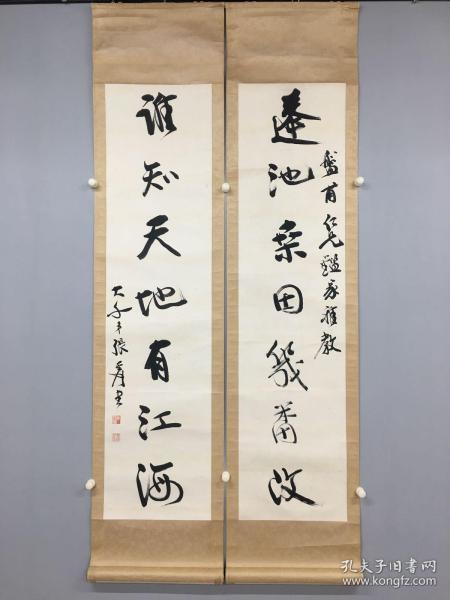 蓬池桒田幾番改
盤甫仁兄鑑家雅教
誰知天地有江海
大千弟張爰
孔夫子旧书网
www.kongfz.com